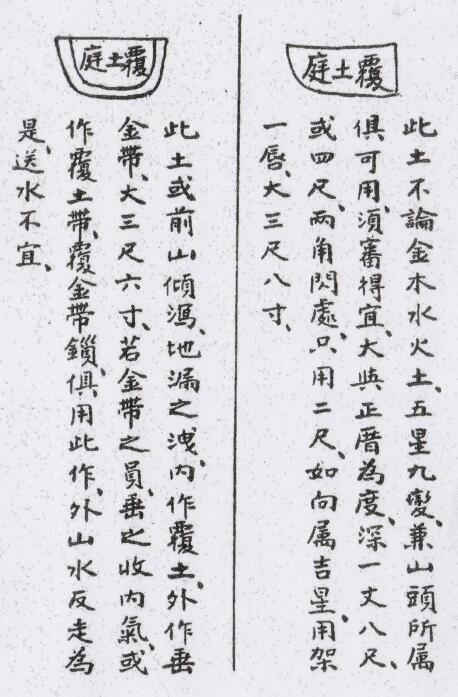 覆土庭
此土不論金木水火土、五星九變、兼山頭所属
俱可用、須審得宜、大與正厝為度、深一丈八尺、
或四尺、兩角閃處、只用二尺、如向属吉星、用架
一唇、大三尺八寸、
覆土庭
此土或前山傾瀉、地漏之洩、内作覆土、外作垂
金帶、大三尺六寸、若金帶之員、垂之收内氣、或
作覆土帶、覆金帶鎖、俱用此作、外山水反走為
是、送水不宜、